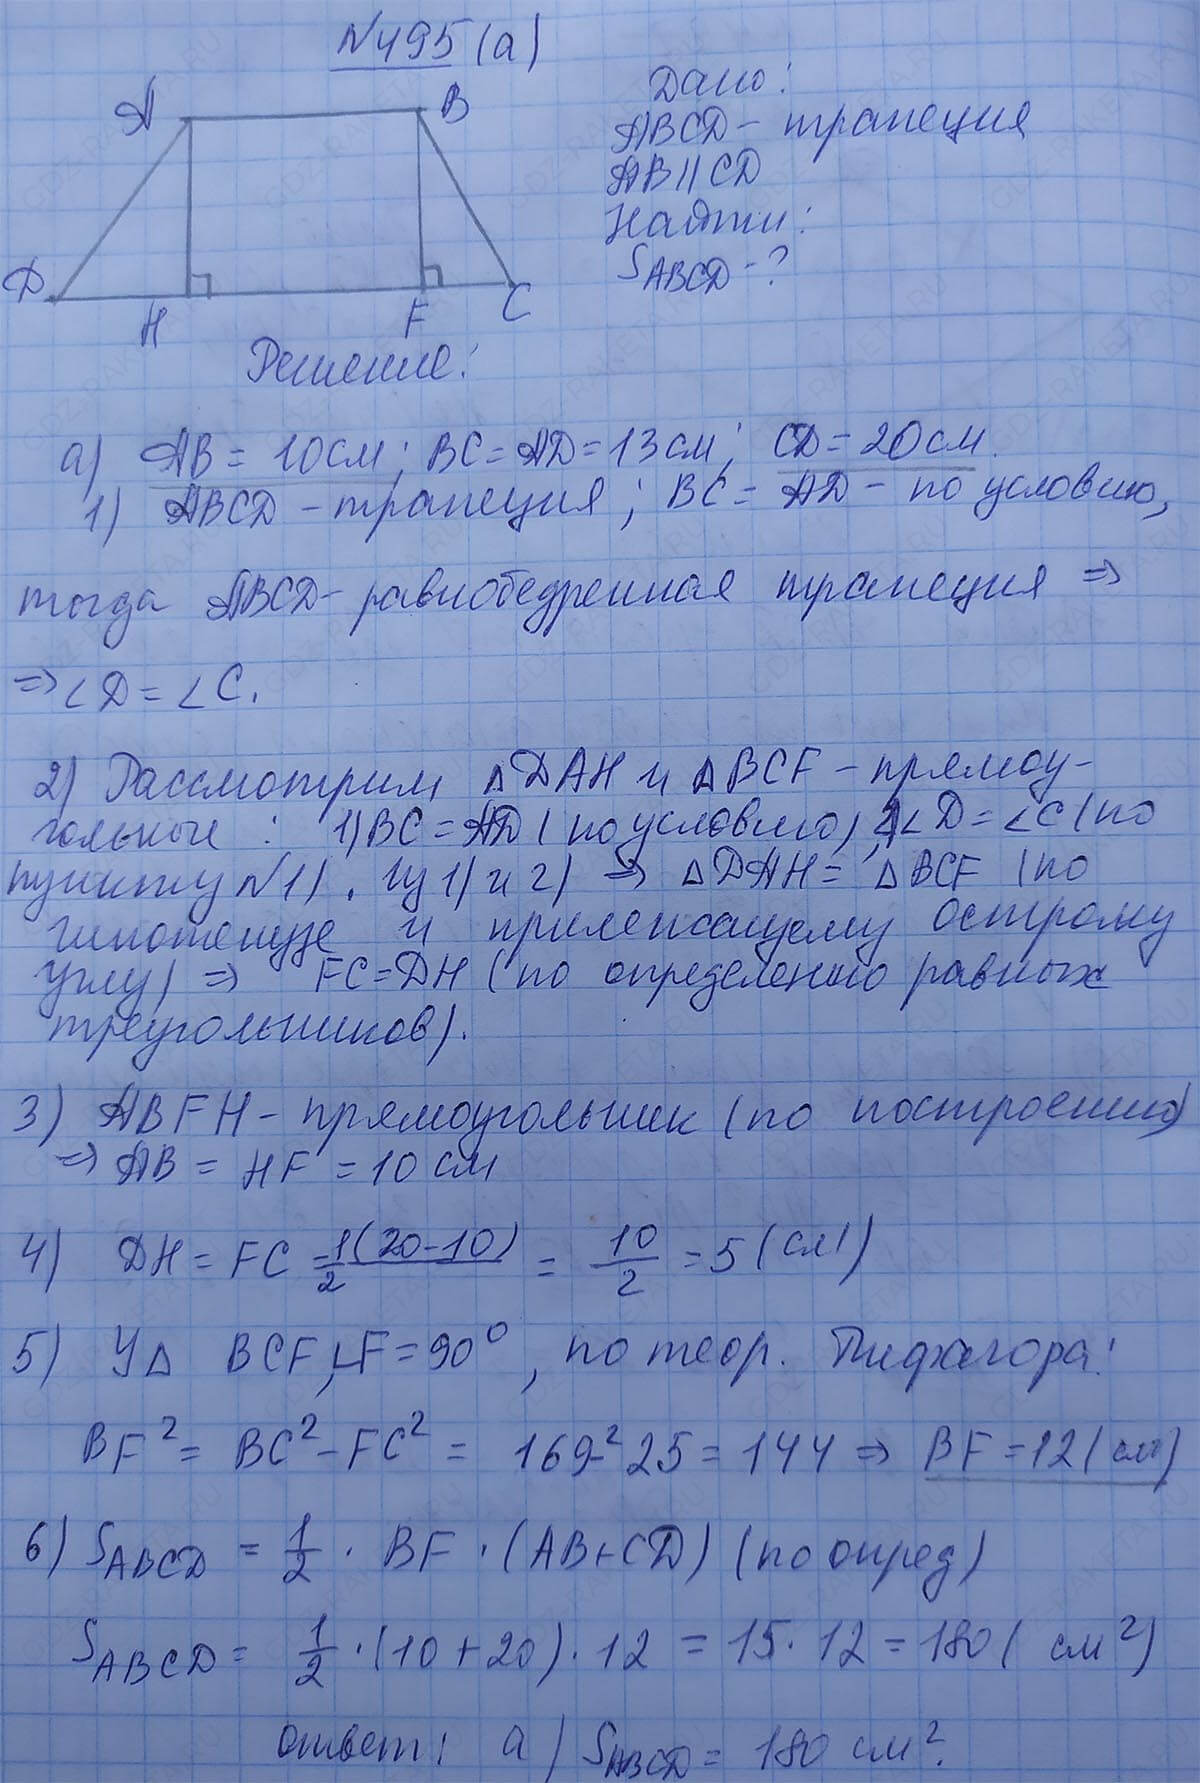 N495(а)
А
В
D
H
F
C
Дано:
ABCD - трапеция
AB || CD
Найти:
S ABCD - ?
Решение:
а) AB = 10см; BC = AD = 13см; CD = 20см.
1) ABCD - трапеция; BC = AD - по условию,
тогда ABCD - равнобедренная трапеция =>
=> ∠D = ∠C.
2) Рассмотрим △DAH и △BCF - прямоу-
гольные: 1) BC = AD (по условию), 2) ∠D = ∠C (по
пункту N1). Из 1) и 2) => △DAH = △BCF (по
гипотенузе и прилежащему острому
углу) => FC = DH (по определению равных
треугольников).
3) ABFH - прямоугольник (по построению)
=> AB = HF = 10 см
4) DH = FC = 1(20-10)/2 = 10/2 = 5 (см)
5) У △ BCF, ∠F = 90°, по теор. Пифагора:
BF² = BC² - FC² = 169 - 25 = 144 => BF = 12 (см)
6) S ABCD = 1/2 · BF · (AB + CD) (по опред)
S ABCD = 1/2 · (10 + 20) · 12 = 15 · 12 = 180 ( см²)
ответ: а) S ABCD = 180 см².